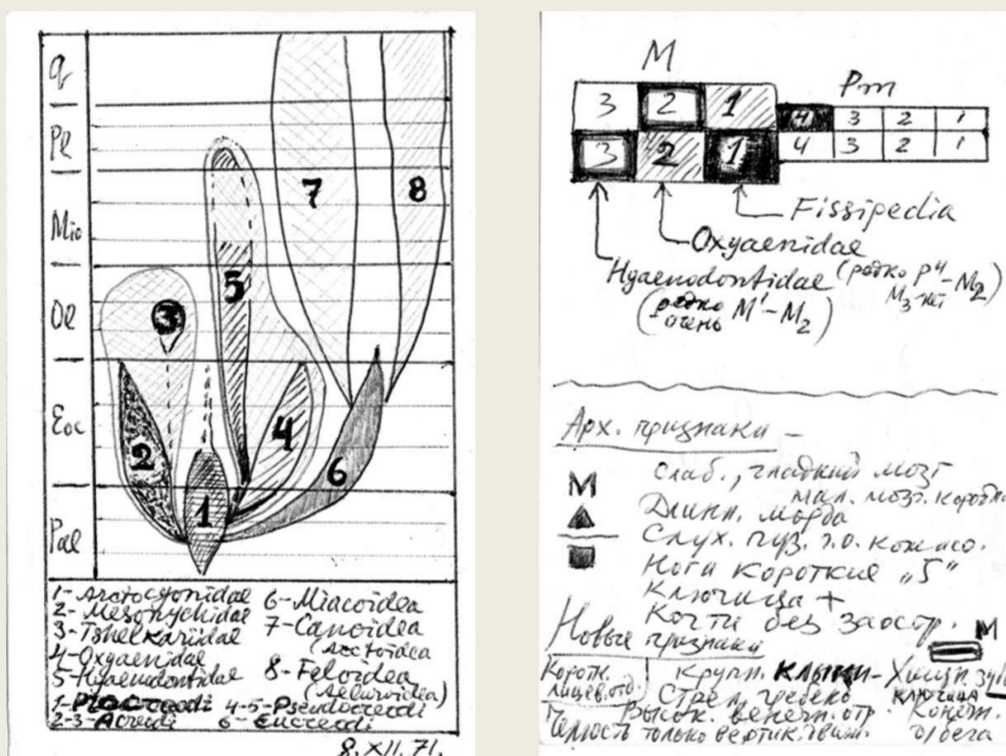 Q
Pl
Mio
Ol
Eoc
Pal
7
8
5
3
4
2
6
1
1-Arctocyonidae
2-Mesonychidae
3-Tshelkariidae
4-Oxyaenidae
5-Hyaenodontidae
6-Miacoidea
7-Canoidea
(Arctoidea
8-Feloidea
(Aeluroidea)
1-Procreodi 4-5-Pseudocreodi
2-3-Acreodi 6-Eucreodi
8.XII.71.
M
Pm
3 2 1 4 3 2 1
3 2 1 4 3 2 1
Fissipedia
Oxyaenidae
Hyaenodontidae (редко P4-M2)
M3-нет
(редко M1-M2)
очень
Арх. признаки -
М слаб., гладкий мозг
мал. мозг. коробка
Длинн. морда
Слух. пуз. т.о. кожисто.
Ноги короткие „5"
Ключица +
Когти без заостр.
Новые признаки
M
Коротк. лицев. отд.
Крупн. клыки - Хищн. зубы
Стрел. гребень ключица
Высок. венечн. отр. Конечн.
Челюсть только вертик. движ. д/бега